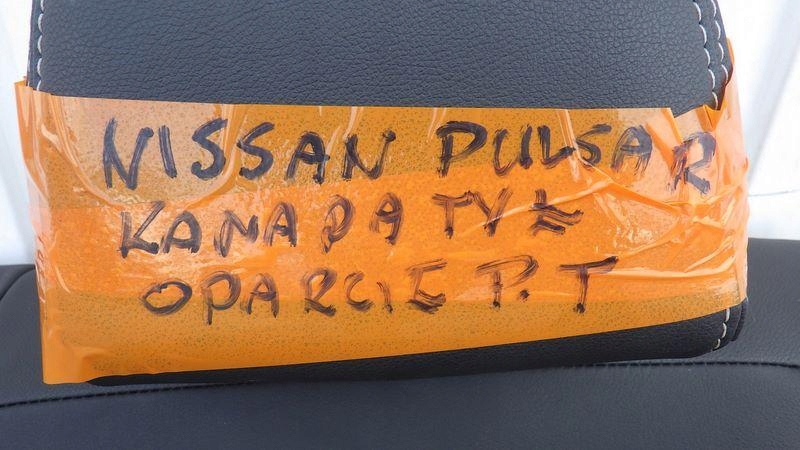 NISSAN PULSAR
KANAPA TYŁ
OPARCIE P.T